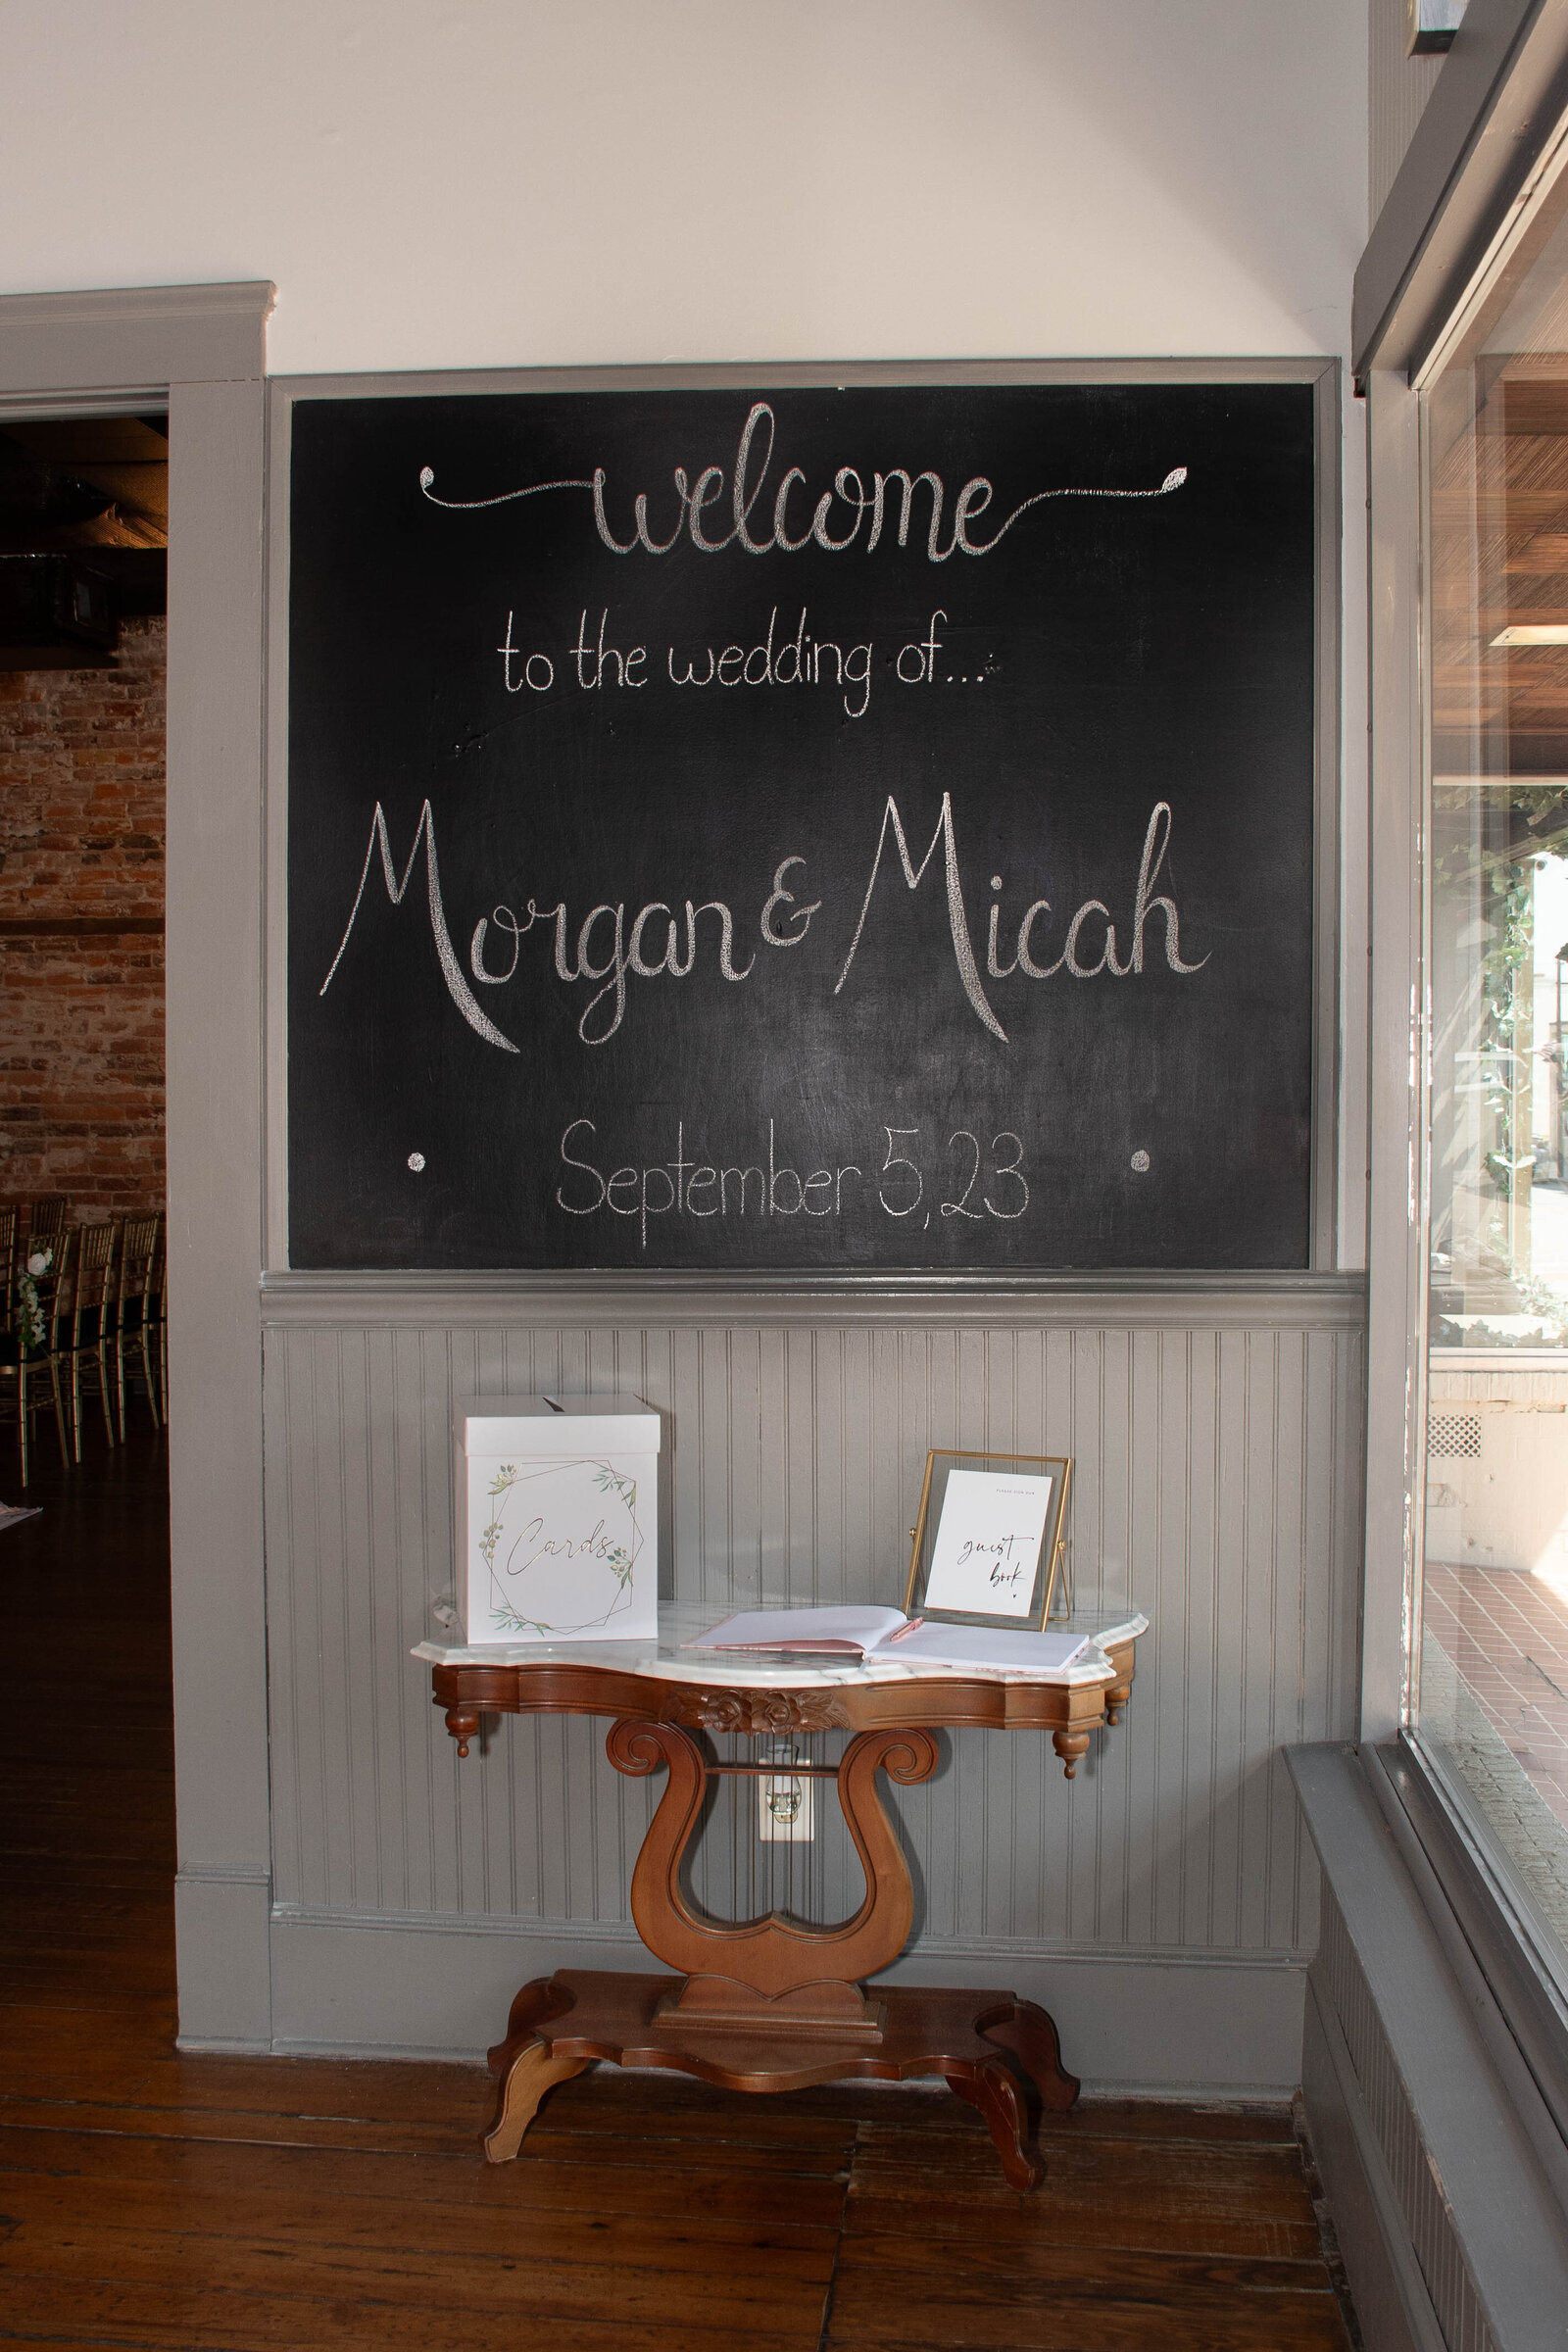 welcome
to the wedding of...
Morgan & Micah
September 5, 23
Cards
PLEASE SIGN OUR
guest
book